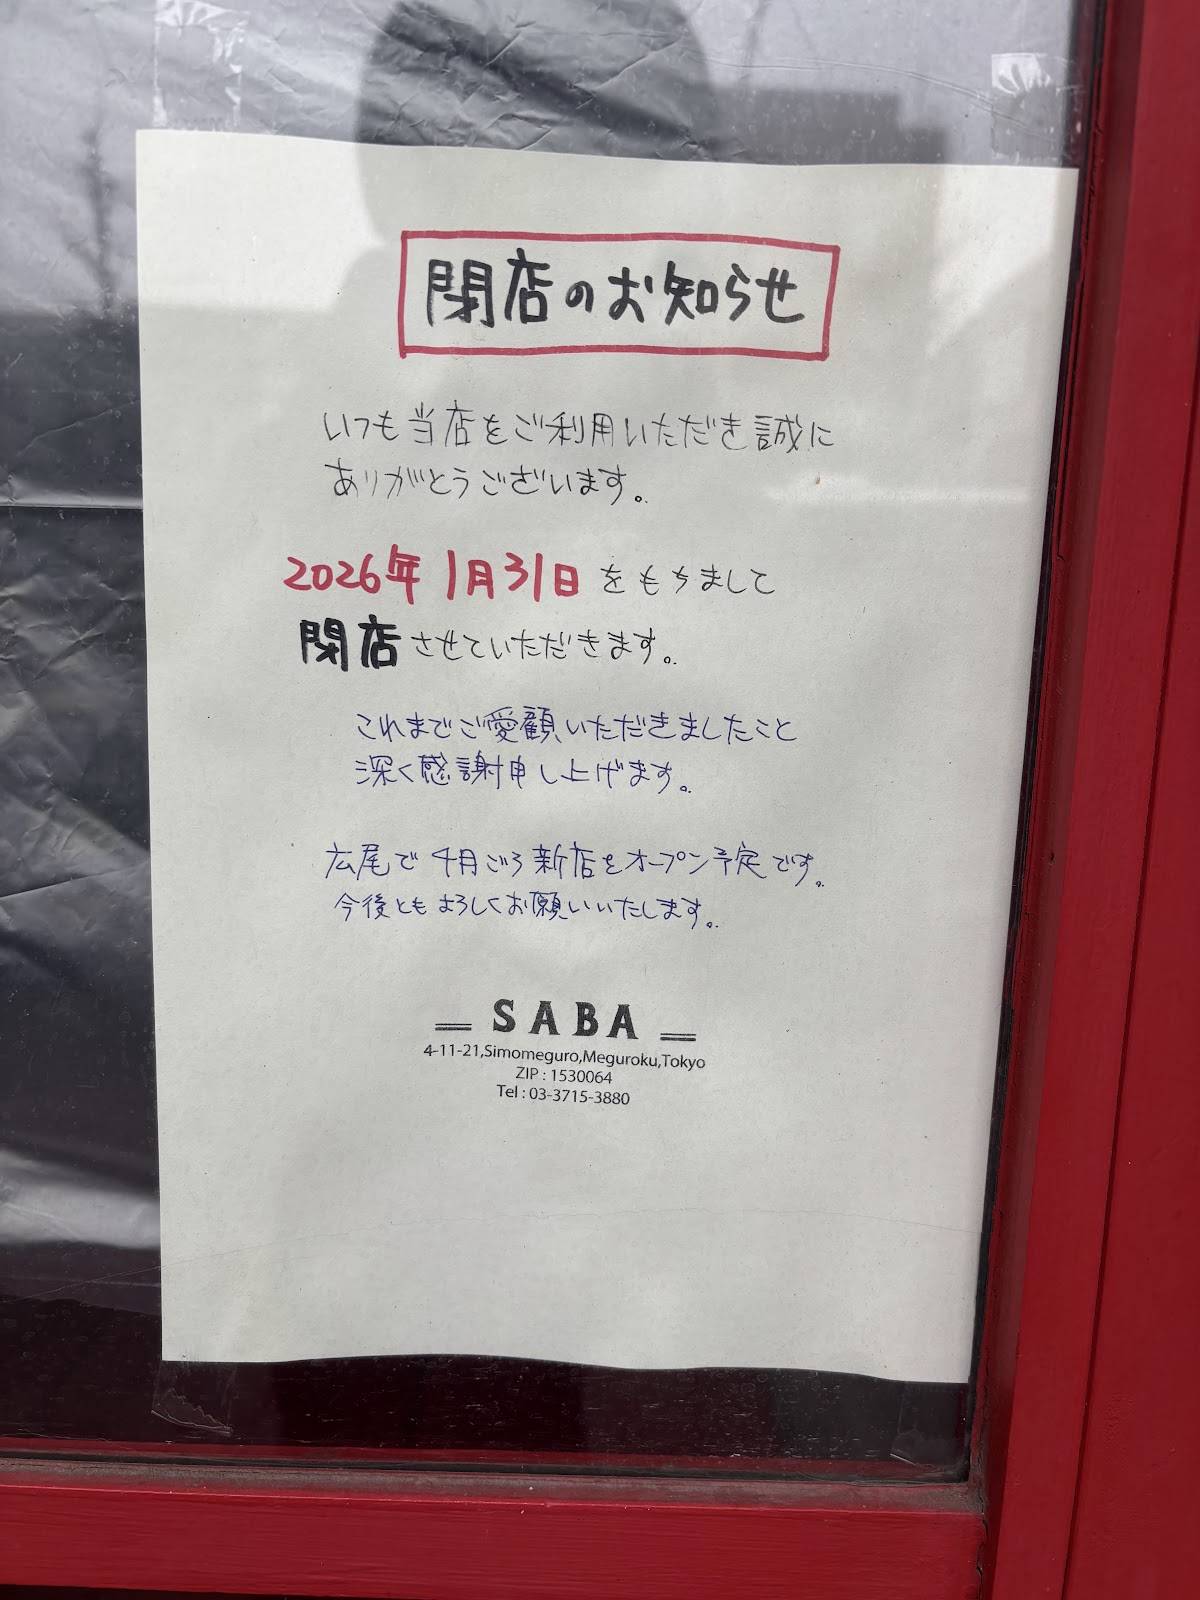 閉店のお知らせ
いつも当店をご利用いただき誠に
ありがとうございます。
2026年1月31日をもちまして
閉店させていただきます。
これまでご愛顧いただきましたこと
深く感謝申し上げます。
広尾で4月ごろ新店をオープン予定です。
今後ともよろしくお願いいたします。
SABA
4-11-21,Simomeguro,Meguroku,Tokyo
ZIP : 1530064
Tel : 03-3715-3880